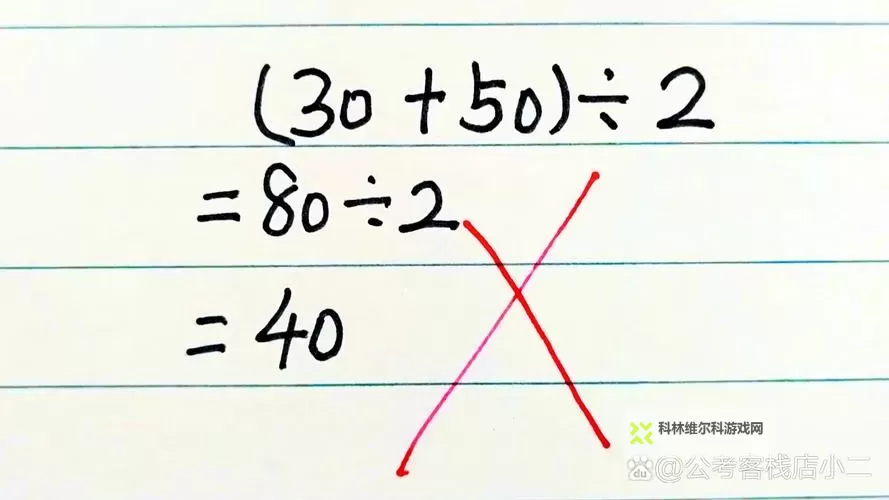 (30+50)÷2
=80÷2
=40
科林维尔科游戏网
du @公考客栈店小二